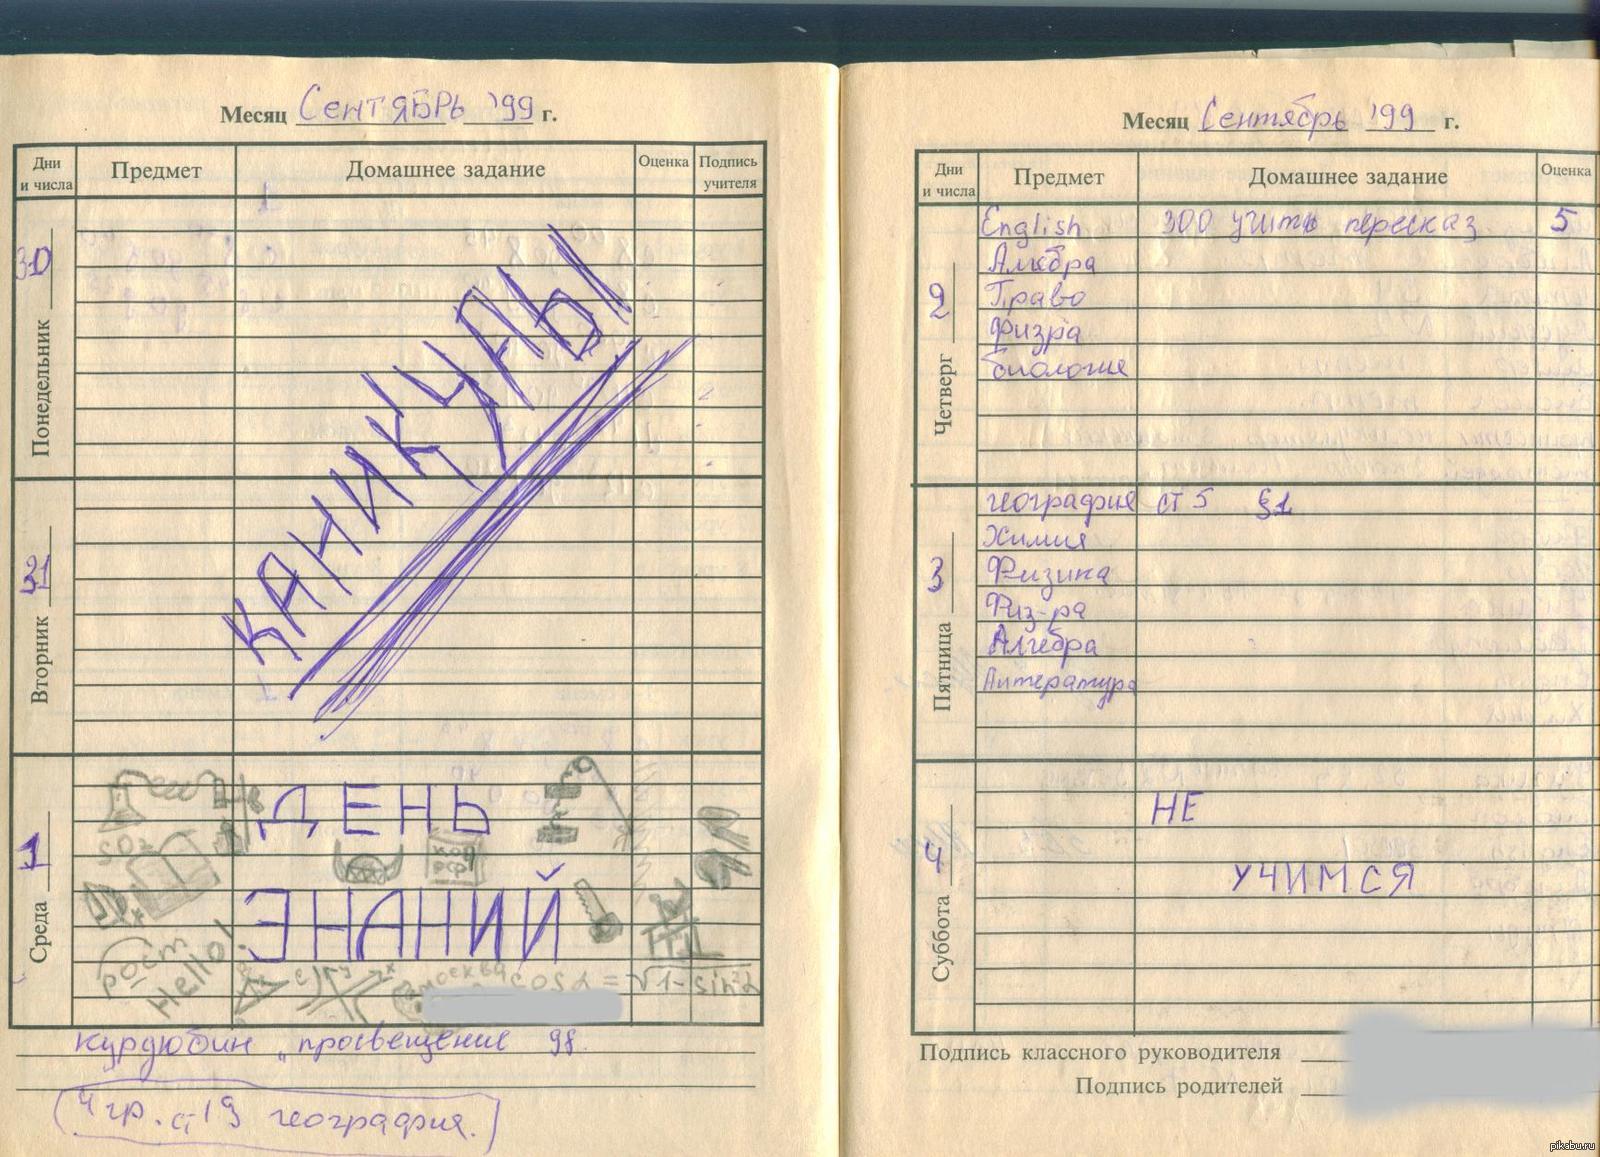 Месяц СЕНТЯБРЬ '99 г.
Дни и числа Предмет Домашнее задание Оценка Подпись учителя
30 Понедельник
КАНИКУЛЫ
31 Вторник
1 Среда
ДЕНЬ
SO₂
КОД РФ
ЗНАНИЙ
рост
Hello!
y x
Москва
cos α = √1-sin²α
Курдюбин „просвещение 98.
4 гр. ст 19 география.
Месяц Сентябрь '99 г.
Дни и числа Предмет Домашнее задание Оценка
2 Четверг
English 300 учить пересказ 5
Алгебра
Право
Физра
биология
3 Пятница
география ст 5 §1
Химия
Физика
Физ-ра
Алгебра
Литература
4 Суббота
НЕ
УЧИМСЯ
Подпись классного руководителя
Подпись родителей
pikabu.ru